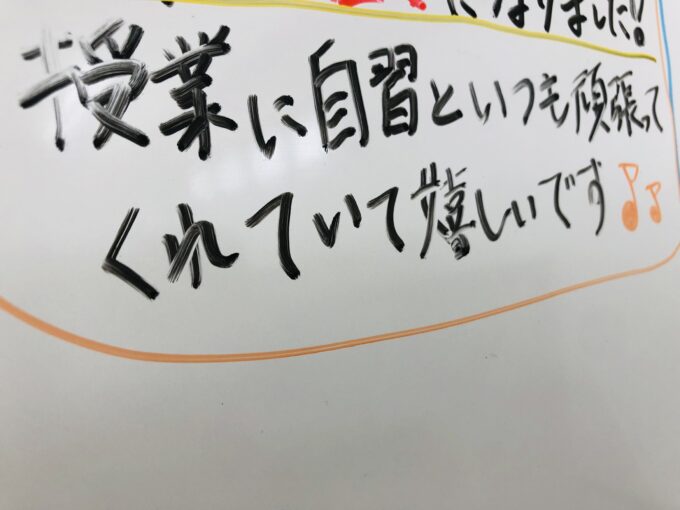 になりました!!
授業に自習といつも頑張って
くれていて嬉しいです♪♪